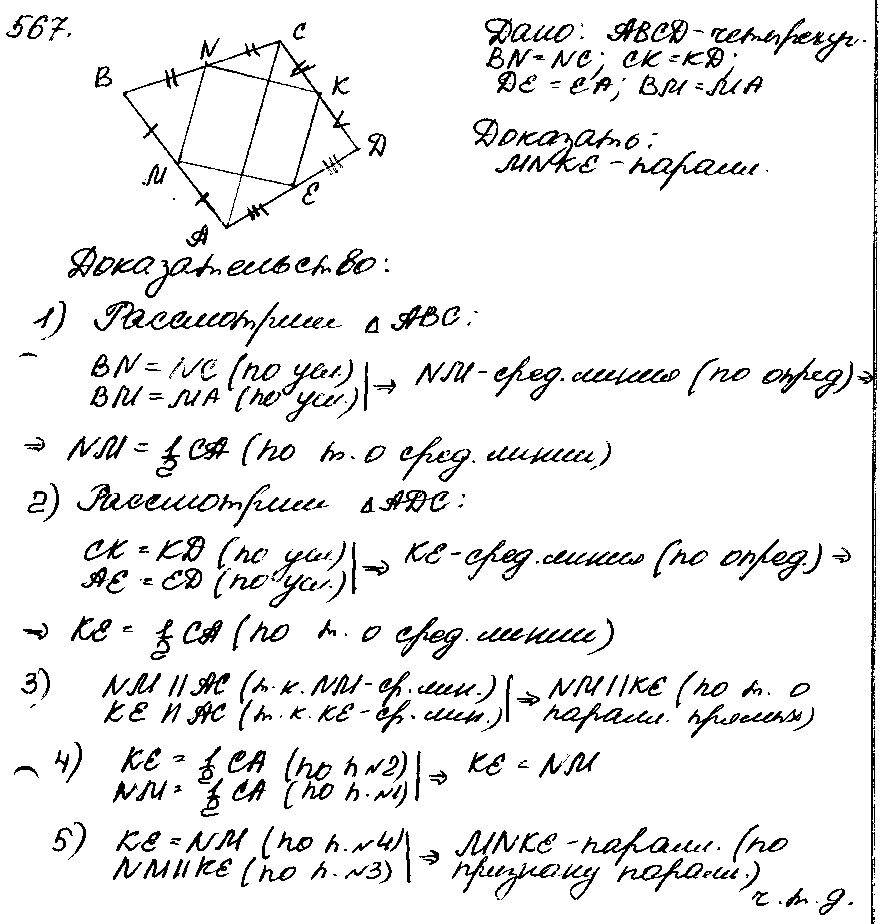 567.
Дано: ABCD - четырехуг.
BN = NC; CK = KD;
DE = EA; BM = MA
Доказать:
MNKE - паралл.
B N C K D E A M
Доказательство:
1) Рассмотрим △ ABC:
BN = NC (по усл.) | ⇒ NM - сред. линия (по опред) ⇒
BM = MA (по усл.)
⇒ NM = 1/2 CA (по т. о сред. линии)
2) Рассмотрим △ ADC:
CK = KD (по усл.) | ⇒ KE - сред. линия (по опред.) ⇒
AE = ED (по усл.)
⇒ KE = 1/2 CA (по т. о сред. линии)
3) NM || AC (т.к. NM - ср. лин.) | ⇒ NM || KE (по т. о
KE || AC (т.к. KE - ср. лин.) паралл. прямых)
4) KE = 1/2 CA (по п №2) | ⇒ KE = NM
NM = 1/2 CA (по п. №1)
5) KE = NM (по п. №4) | ⇒ MNKE - паралл. (по
NM || KE (по п. №3) признаку паралл.)
ч. т. д.